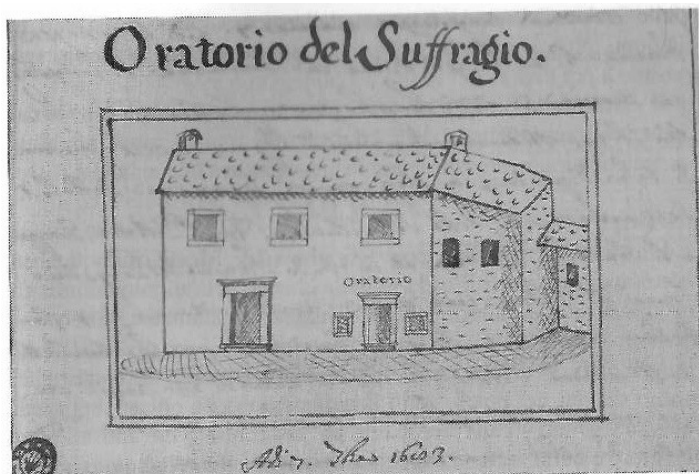 Oratorio del Suffragio.
Oratorio
Adi 7.